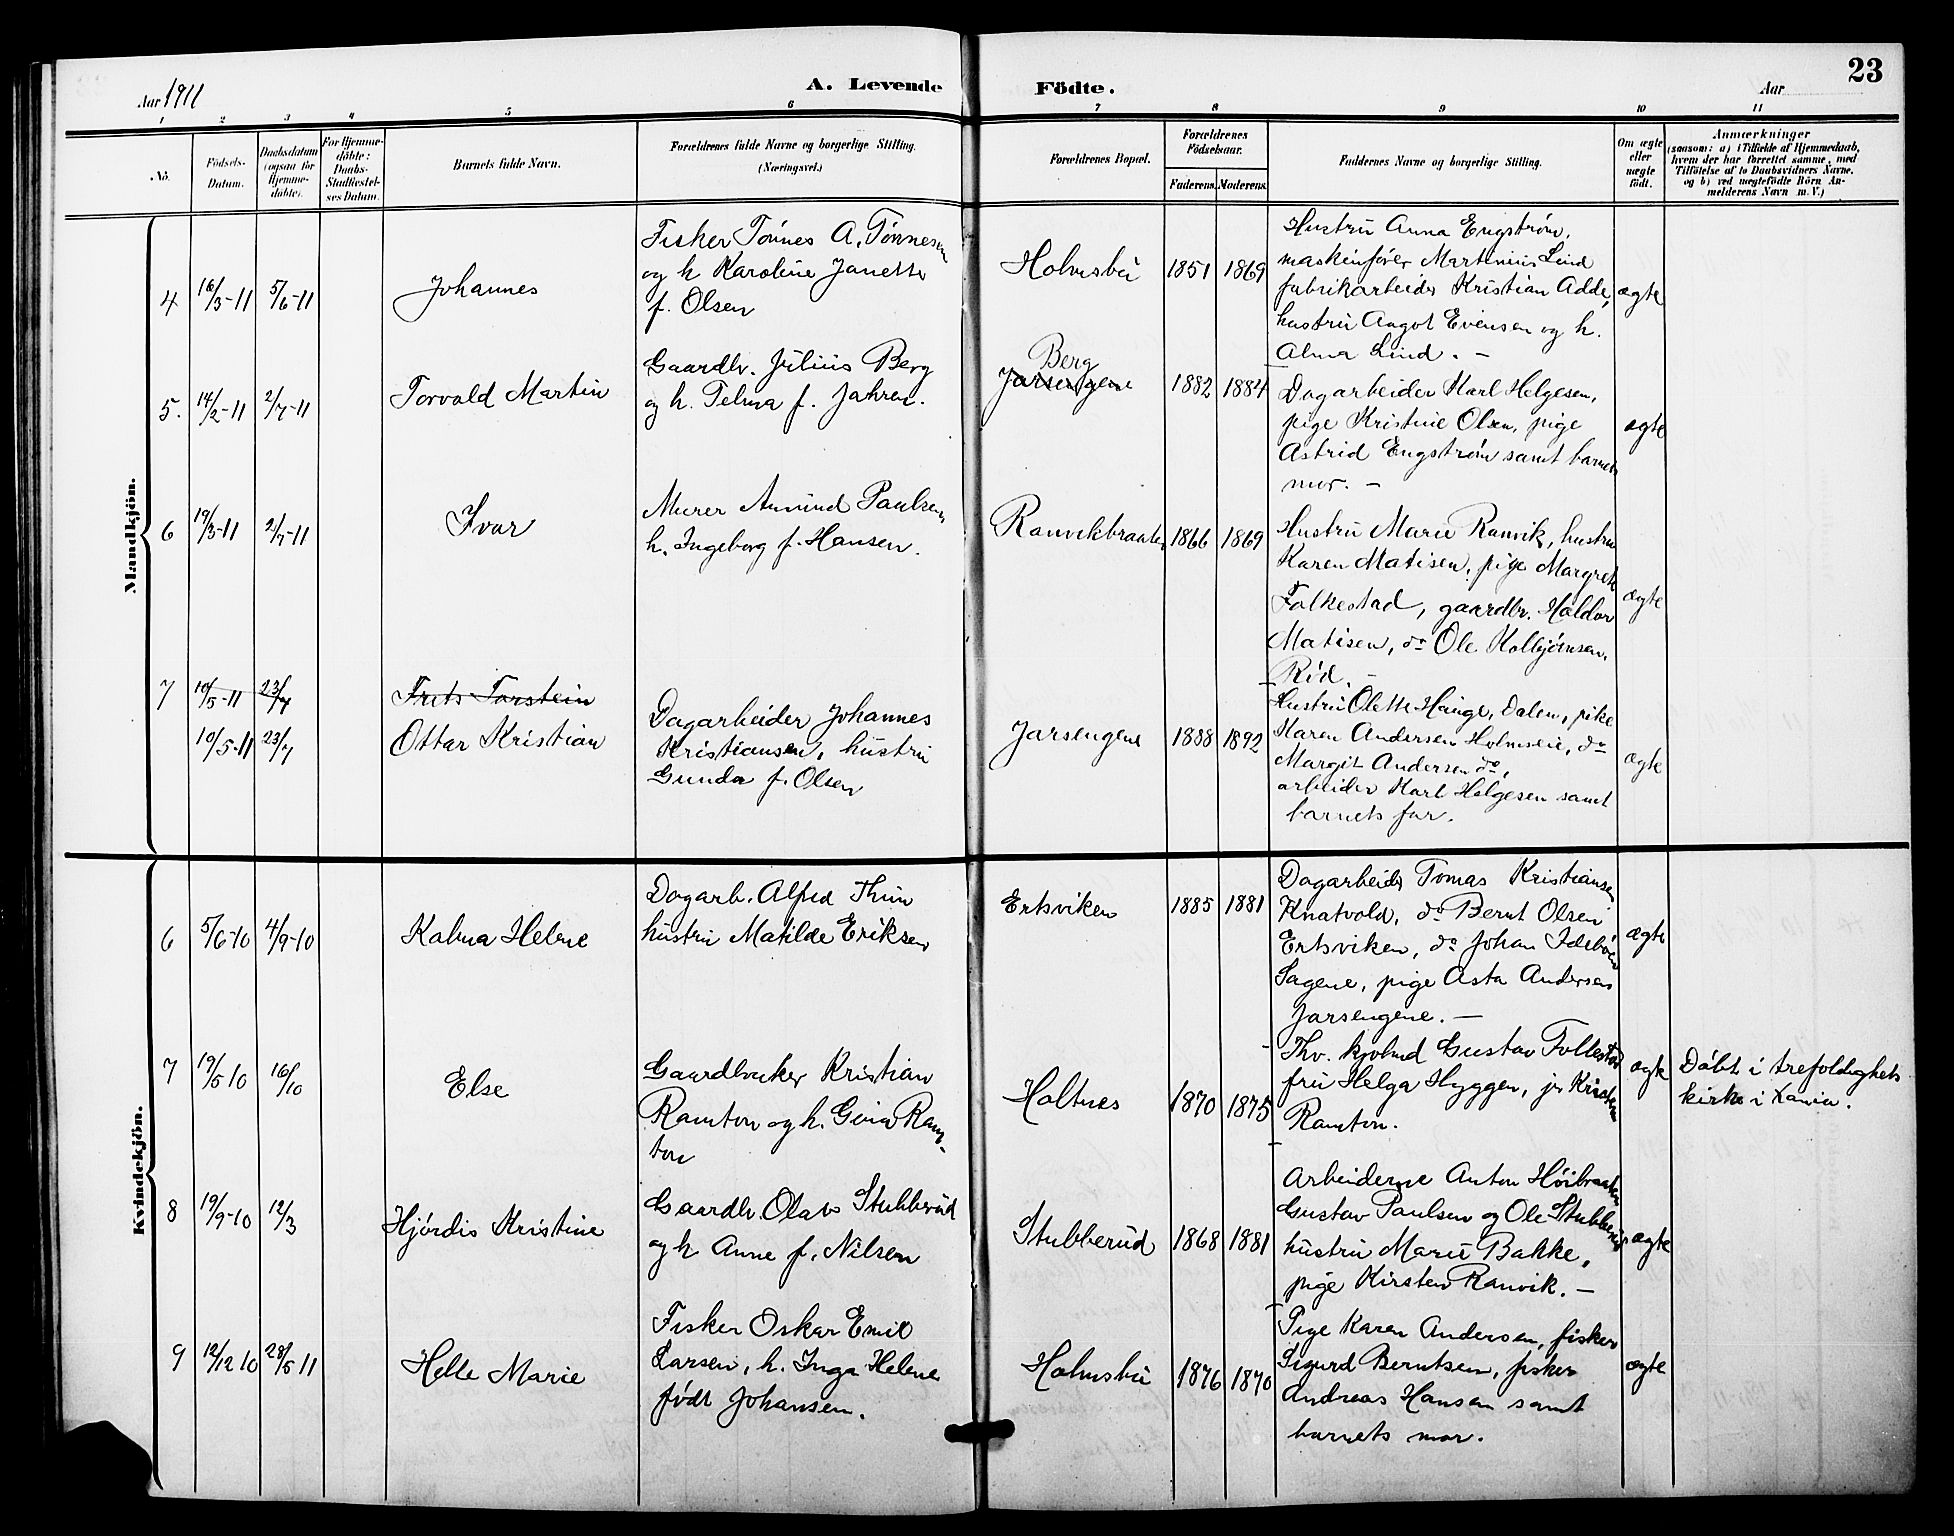 23
Aar 1911
A. Levende Födte.
Aar
1 2 3 4 5 6 7 8 9 10 11
No.
Födsels-
Datum.
Daabsdatum
(ogsaa for
Hjemme-
döbte).
For Hjemme-
döbte:
Daabs-
Stadfæstel-
ses Datum.
Barnets fulde Navn.
Forældrenes fulde Navne og borgerlige Stilling.
(Næringsvei.)
Forældrenes Bopæl.
Forældrenes
Födselsaar.
Faderens. Moderens.
Faddernes Navne og borgerlige Stilling.
Om ægte
eller
uægte
födt.
Anmærkninger
(saasom: a) i Tilfælde af Hjemmedaab,
hvem der har forrettet samme, med
Tilföielse af to Daabsvidners Navne,
og b) ved uægtefödte Börn An-
melderens Navn m. V.)
Mandkjön.
4
16/3-11
5/6-11
Johannes
Fisker Tönnes A. Tönnesen
og h Karoline Janette
f. Olsen
Holmsbu
1851
1869
Hustru Anna Engström,
maskinförer Martinius Lind
fabrikarbeider Kristian Adde,
hustru Aagot Evensen og h.
Alma Lind. -
ægte
5.
14/2-11
2/7-11
Torvald Martin
Gaardbr. Julius Berg
og h. Telma f. Jahren.
Berg
Jarsengene
1882
1884
Dagarbeider Karl Helgesen,
pige Kristine Olsen, pige
Astrid Engström samt barnets
mor. -
ægte
6
19/3-11
2/7-11
Ivar
Murer Amund Paulsen
h. Ingeborg f. Hansen.
Ranvikbraaten
1866
1869
Hustru Marie Ranvik, hustru
Karen Matisen, pige Margrete
Folkestad, gaardbr. Haldor
Matisen, do Ole Kolbjörnsen,
Röd. -
ægte
7
10/5-11
23/7
Frits Torstein
10/5-11
23/7
Ottar Kristian
Dagarbeider Johannes
Kristiansen, hustru
Gunda f. Olsen
Jarsengene
1888
1892
Hustru Olette Hauge, Dalen, pike
Karen Andersen Holmseie, do
Margit Andersen do,
arbeider Karl Helgesen samt
barnets far.
ægte
Kvindekjön.
6
5/6-10
4/9-10
Kalma Helene
Dagarb. Alfred Thun
hustru Matilde Eriksen
Ertsviken
1885
1881
Dagarbeider Tomas Kristiansen
Knatvold, do Bernt Olsen
Ertsviken, do Johan
Sagene, pige Asta Andersen
Jarsengene. -
ægte
7
19/5 10
16/10
Else
Gaardbruker Kristian
Ramton og h. Gina Ram-
ton
Holtnes
1870
1875
Thv. Gustav Follestad
fru Helga Hyggen, jr Kristen
Ramton.
ægte
Döbt i trefoldighets
kirke i Xania.
8
19/9-10
12/3
Hjördis Kristine
Gaardbr. Olav Stubberud
og h Anne f. Nilsen
Stubberud
1868
1881
Arbeiderne Anton Höibraaten
Gustav Paulsen og Ole Stubberud,
hustru Marie Bakke,
pige Kirsten Ranvik. -
ægte
9
12/12 10
28/5 11
Helle Marie
Fisker Oskar Emil
Larsen, h. Inga Helene
födt Johansen.
Holmsbu
1876
1870
Pige Karen Andersen, fisker
Sigurd Berntsen, fisker
Andreas Hansen samt
barnets mor.
ægte